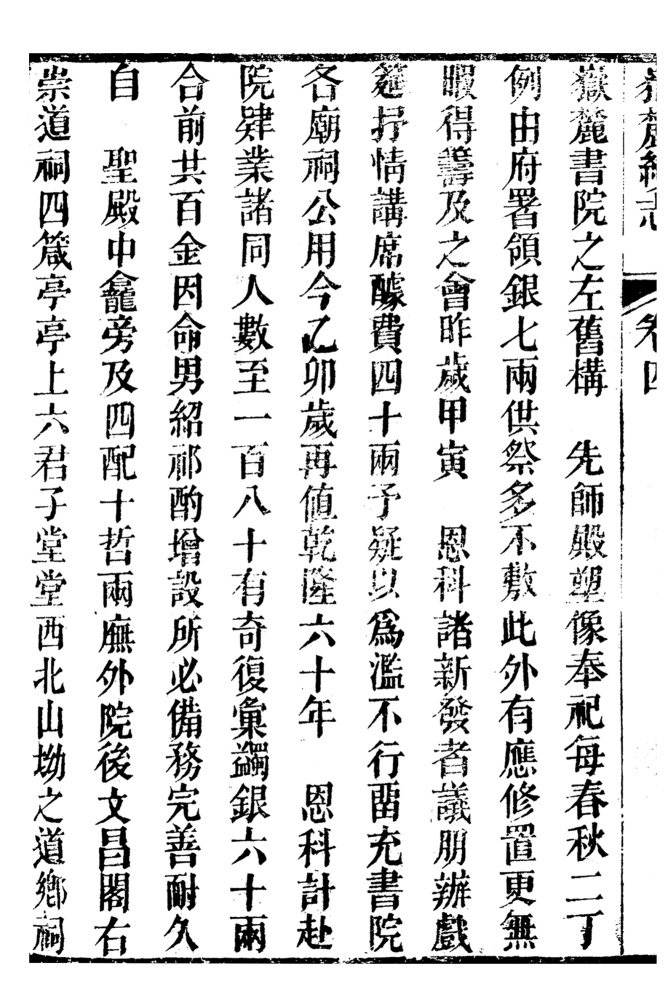 嶽麓續志
卷四
嶽麓書院之左舊構　先師殿塑像奉祀每春秋二丁
例由府署領銀七兩供祭多不敷此外有應修置更無
暇得籌及之會昨歲甲寅　恩科諸新發者議朋辦戲
筵抒情講席醵費四十兩予疑以爲濫不行畱充書院
各廟祠公用今乙卯歲再值乾隆六十年　恩科計赴
院肄業諸同人數至一百八十有奇復彙蠲銀六十兩
合前共百金因命男紹祁酌增設所必備務完善耐久
自　聖殿中龕旁及四配十哲兩廡外院後文昌閣右
崇道祠四箴亭亭上六君子堂堂西北山坳之道鄉祠